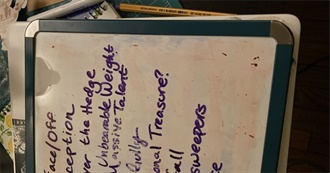 ace/Off
ception
ver the Hedge
Unbearable Weight
Massive Talent
Quills
onal Treasure?
all
sweepers